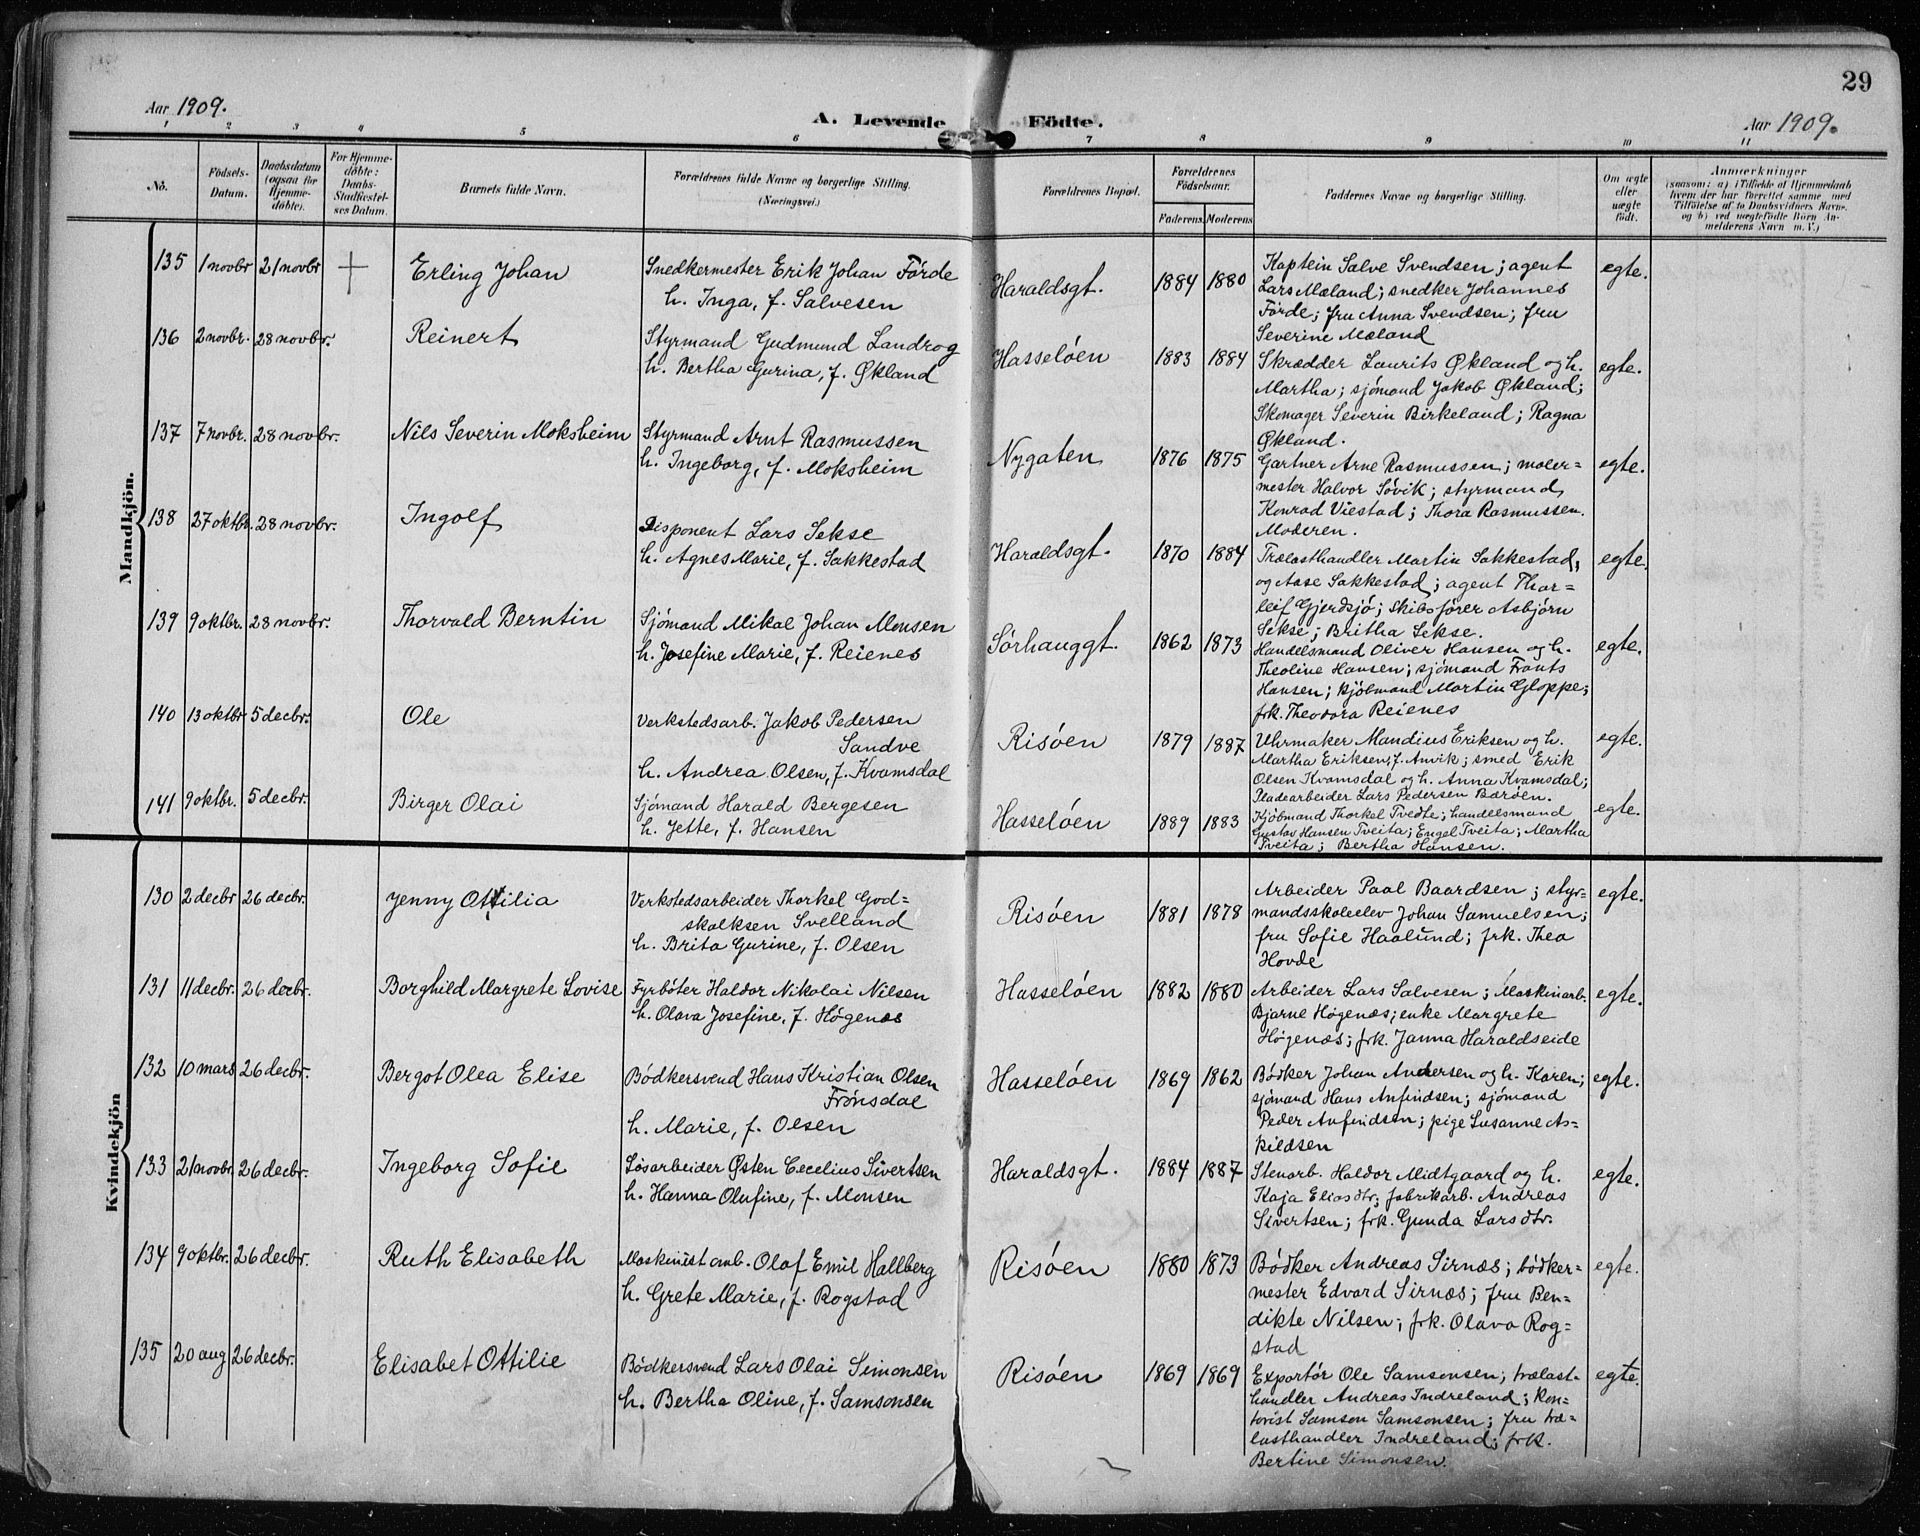 29
Aar 1909. A. Levende Födte. Aar 1909.
1 2 3 4 5 6 7 8 9 10 11
No.
Födsels-
Datum.
Daabsdatum
(ogsaa for
Hjemme-
døbte).
For Hjemme-
døbte:
Daabs-
Stadfæstel-
ses Datum.
Barnets fulde Navn.
Forældrenes fulde Navne og borgerlige Stilling.
(Næringsvei.)
Forældrenes Bopæl.
Forældrenes
Födselsaar.
Faderens. Moderens
Faddernes Navne og borgerlige Stilling.
Om ægte
eller
uægte
født.
Anmærkninger
(saasom: a) i Tilfælde af Hjemmedaab
hvem der har forrettet samme med
Tilföielse af to Daabsvidners Navne.
og b) ved uægtefödte Börn An-
melderens Navn m. V.)
Mandkjön.
135 1 novbr 21 novbr + Erling Johan
Snedkermester Erik Johan Förde
h. Inga, f. Salvesen
Haraldsgt. 1884 1880
Kaptein Salve Svendsen; agent
Lars Mæland; snedker Johannes
Förde; fru Anna Svendsen; fru
Severine Mæland
egte.
136 2 novbr. 28 novbr. Reinert
Styrmand Gudmund Landrog
h. Bertha Gurina, f. Økland
Hasselöen 1883 1884
Skrædder Laurits Økland og h.
Martha; sjömand Jakob Økland;
Skomager Severin Birkeland; Ragna
Økland.
egte.
137 7 novbr. 28 novbr. Nils Severin Moksheim
Styrmand Arnt Rasmussen
h. Ingeborg, f. Moksheim
Nygaten 1876 1875
Gartner Arne Rasmussen; maler-
mester Halvor Sövik; styrmand
Konrad Viestad; Thora Rasmussen.
Moderen.
egte.
138 27 oktbr. 28 novbr. Ingolf
Disponent Lars Sekse
h. Agnes Marie, f. Sakkestad
Haraldsgt. 1870 1884
Trælasthandler Martin Sakkestad,
og Aase Sakkestad; agent Thor-
leif Gjerdsjö; skibsförer Asbjörn
Sekse; Britha Sekse.
egte.
139 9 oktbr. 28 novbr. Thorvald Berntin
Sjömand Mikal Johan Monsen
h. Josefine Marie, f. Reienes
Sörhauggt. 1862 1873
Handelsmand Oliver Hansen og h.
Theoline Hansen; sjömand Frants
Hansen; kjöbmand Martin Gloppe;
frk. Theodora Reienes
egte.
140 13 oktbr 5 decbr. Ole
Verkstedsarb. Jakob Pedersen
Sandve
h. Andrea Olsen, f. Kvamsdal
Risöen 1879 1887
Uhrmaker Mandius Eriksen og h.
Martha Eriksen, f. Anvik; smed Erik
Olsen Kvamsdal og h. Anna Kvamsdal;
Pladearbeider Lars Pedersen Baröen.
egte.
141 9 oktbr. 5 decbr. Birger Olai
Sjömand Harald Bergesen
h. Jette, f. Hansen
Hasselöen 1889 1883
Kjöbmand Thorkel Tvedte; handelsmand
Gustav Hansen Tveita; Engel Tveita; Martha
Tveita; Bertha Hansen.
egte.
Kvindekjön
130 2 decbr 26 decbr. Jenny Ottilia
Verkstedsarbeider Thorkel God=
skalksen Svelland
h. Brita Gurine, f. Olsen
Risöen 1881 1878
Arbeider Paal Baardsen; styr-
mandsskoleelev Johan Samuelsen;
fru Sofie Haalund; frk. Thea
Hovde
egte.
131 11 decbr. 26 decbr. Borghild Margrete Lovise
Fyrböter Haldor Nikolai Nilsen
h. Olava Josefine, f. Högenæs
Hasselöen 1882 1880
Arbeider Lars Salvesen; Maskinarb.
Bjarne Högenæs; enke Margrete
Högenæs; frk. Janna Haraldseide
egte.
132 10 mars 26 decbr. Bergot Olea Elise
Bödkersvend Hans Kristian Olsen
Frönsdal
h. Marie, f. Olsen
Hasselöen 1869 1862
Bödker Johan Andersen og h. Karen;
sjömand Hans Anfindsen; sjömand
Peder Anfindsen; pige Susanne As-
kildsen
egte.
133 21 novbr. 26 decbr. Ingeborg Sofie
Lösarbeider Østen Cecelius Sivertsen
h. Hanna Olufine, f. Monsen
Haraldsgt. 1884 1887
Stenarb. Haldor Midtgaard og h.
Kaja Eliasdtr; fabrikarb. Andreas
Sivertsen; frk. Gunda Larsdtr.
egte.
134 9 oktbr. 26 decbr. Ruth Elisabeth
Maskinist amb. Olaf Emil Hallberg
h. Grete Marie, f. Rogstad
Risöen 1880 1873
Bödker Andreas Sirnæs; bödker-
mester Edvard Sirnæs; fru Ben=
dikte Nilsen; frk. Olava Rog=
stad
egte.
135 20 aug 26 decbr. Elisabet Ottilie
Bödkersvend Lars Olai Simonsen
h. Bertha Oline, f. Samsonsen
Risöen 1869 1869
Exportör Ole Samsonsen; trælast-
handler Andreas Indreland; kon-
torist Samson Samsonsen; fru træ-
lasthandler Indreland; frk.
Bertine Simonsen.
egte.